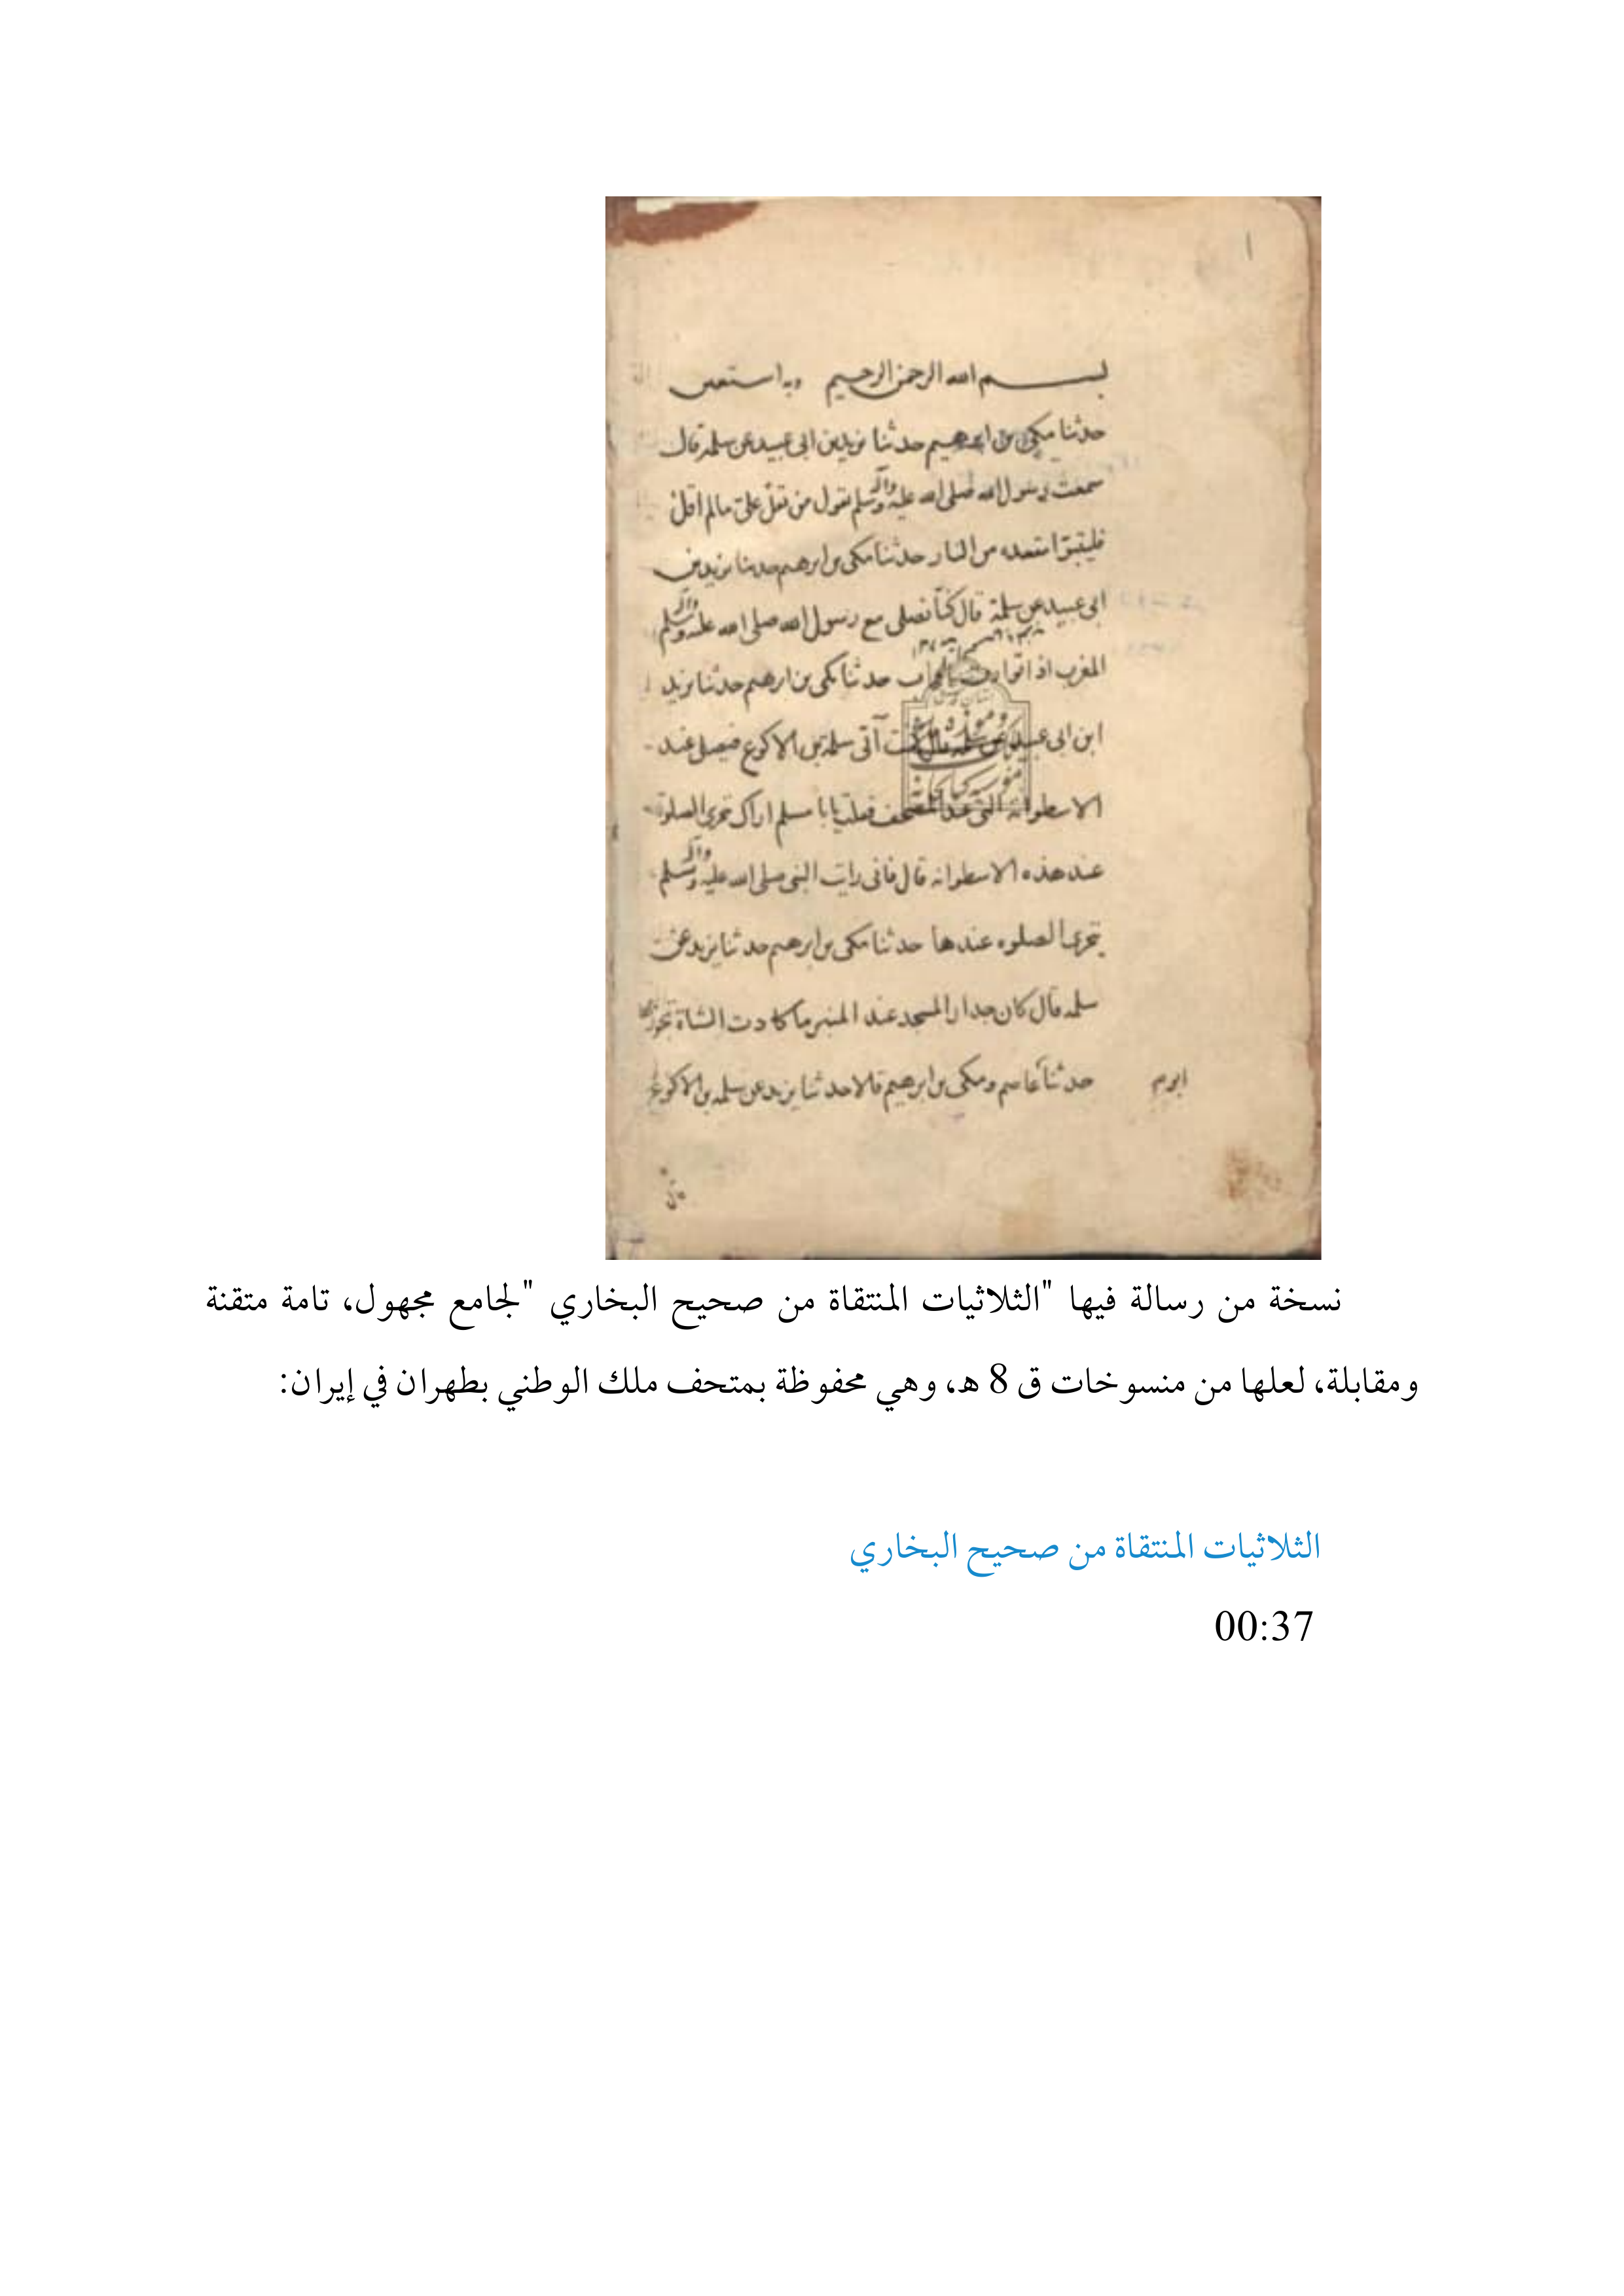 بسم الله الرحمن الرحيم وبه استعين
حدثنا مكي بن ابرهيم حدثنا يزيد بن ابى عبيد عن سلمه قال
سمعت رسول الله صلى الله عليه واله وسلم يقول من تقل على مالم اقل
فليتبوا مقعده من النار حدثنا مكى بن ابرهيم حدثنا يزيد بن
ابى عبيد عن سلمة قال كنا نصلى مع رسول الله صلى الله عليه واله وسلم
المغرب اذا توارت بالحجاب حدثنا مكى بن ابرهيم حدثنا يزيد
ابن ابى عبيد قال كنت آتى سلمه بن الاكوع فيصلى عند
الاسطوانه التى عند المصحف فقلت يابا مسلم اراك تحرى الصلوة
عند هذه الاسطوانه قال فانى رايت النبى صلى الله عليه واله وسلم
يتحرى الصلوه عندها حدثنا مكى بن ابرهيم حدثنا يزيد عن
سلمه قال كان جدار المسجد عند المنبر ما كادت الشاة تجوزها
حدثنا عاصم ومكى بن ابرهيم قالا حدثنا يزيد عن سلمه بن الاكوع
نسخة من رسالة فيها "الثلاثيات المنتقاة من صحيح البخاري "لجامع مجهول، تامة متقنة
ومقابلة، لعلها من منسوخات ق 8 ه، وهي محفوظة بمتحف ملك الوطني بطهران في إيران:
الثلاثيات المنتقاة من صحيح البخاري
00:37